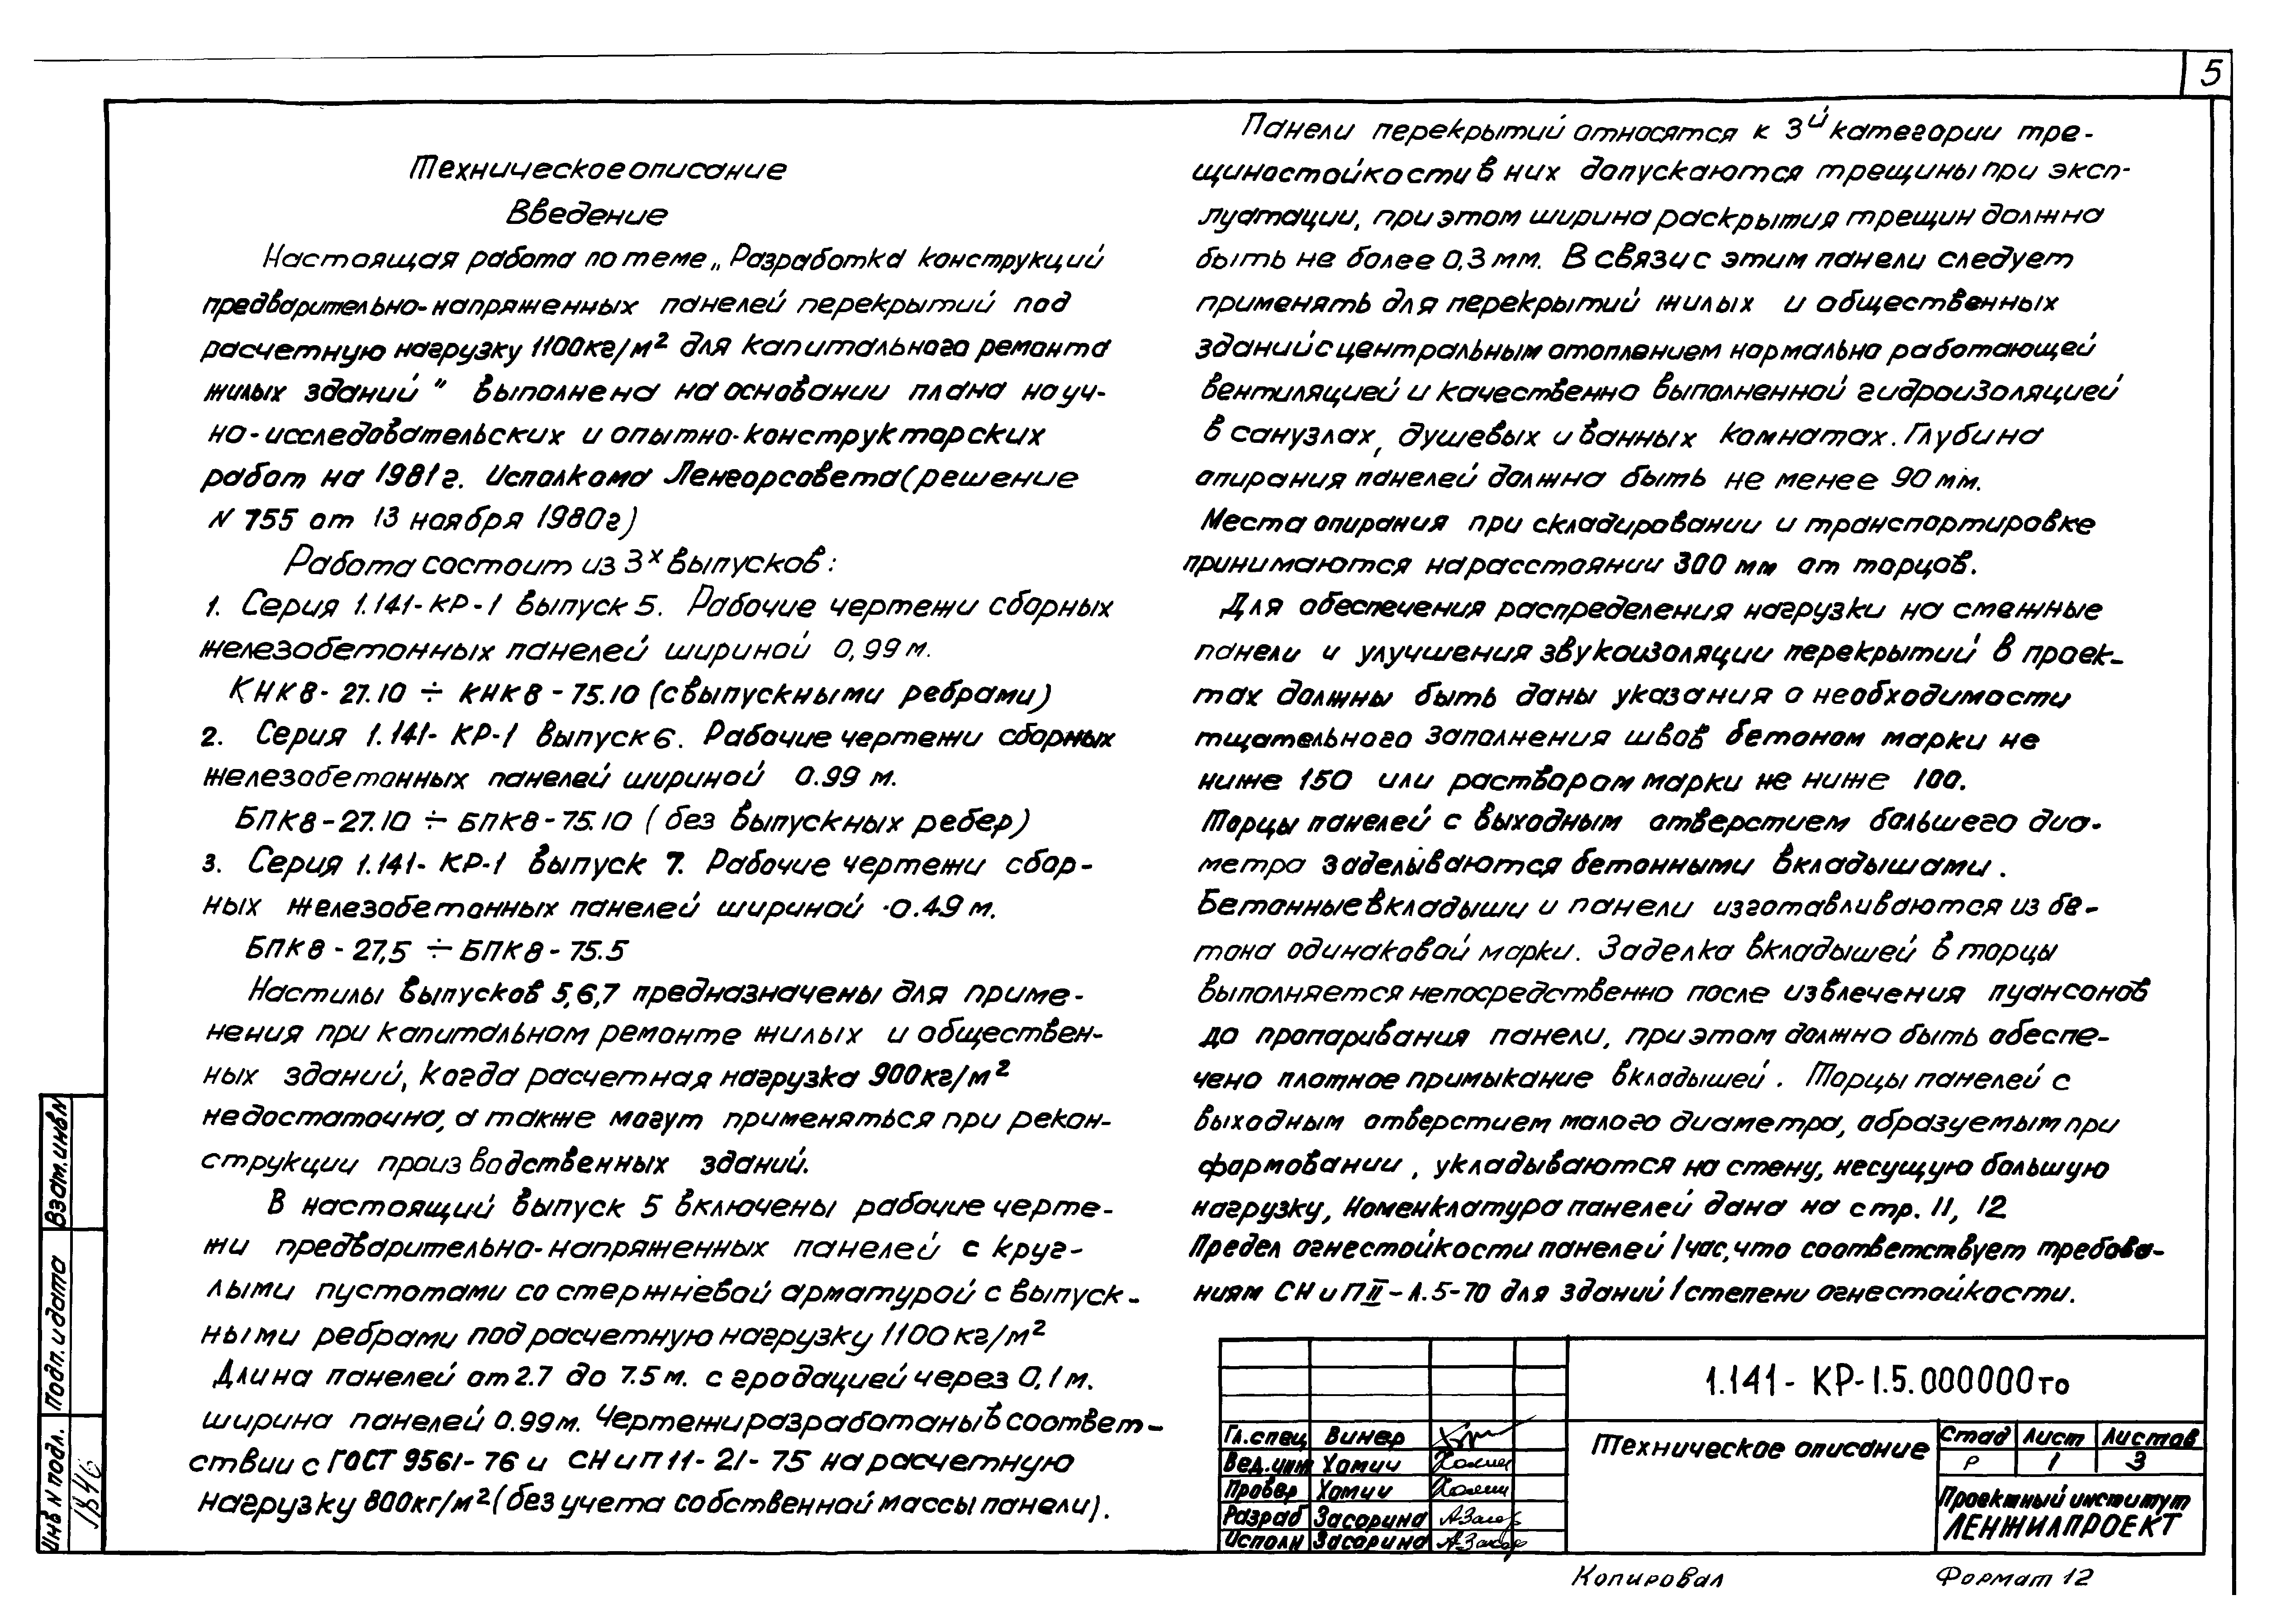 5
Техническое описание
Введение
Настоящая работа по теме „Разработка конструкций
предварительно-напряженных панелей перекрытий под
расчетную нагрузку 1100кг/м² для капитального ремонта
жилых зданий" выполнена на основании плана науч-
но-исследовательских и опытно-конструкторских
работ на 1981г. Исполкома Ленгорсовета (решение
N 755 от 13 ноября 1980г)
Работа состоит из 3х выпусков:
1. Серия 1.141-КР-1 выпуск 5. Рабочие чертежи сборных
железобетонных панелей шириной 0,99 м.
КНК8-27.10 ÷ КНК8-75.10 (с выпускными ребрами)
2. Серия 1.141-КР-1 выпуск 6. Рабочие чертежи сборных
железобетонных панелей шириной 0.99 м.
БПК8-27.10 ÷ БПК8-75.10 (без выпускных ребер)
3. Серия 1.141-КР-1 выпуск 7. Рабочие чертежи сбор-
ных железобетонных панелей шириной 0.49 м.
БПК8-27,5 ÷ БПК8-75.5
Настилы выпусков 5,6,7 предназначены для приме-
нения при капитальном ремонте жилых и обществен-
ных зданий, когда расчетная нагрузка 900кг/м²
недостаточна, а также могут применяться при рекон-
струкции производственных зданий.
В настоящий выпуск 5 включены рабочие черте-
жи предварительно-напряженных панелей с круг-
лыми пустотами со стержневой арматурой с выпуск-
ными ребрами под расчетную нагрузку 1100кг/м²
Длина панелей от 2.7 до 7.5 м. с градацией через 0,1 м.
ширина панелей 0.99м. Чертежи разработаны в соответ-
ствии с ГОСТ 9561-76 и СНиП 11-21-75 на расчетную
нагрузку 800кг/м² (без учета собственной массы панели).
Панели перекрытий относятся к 3й категории тре-
щиностойкости в них допускаются трещины при эксп-
луатации, при этом ширина раскрытия трещин должна
быть не более 0,3 мм. В связи с этим панели следует
применять для перекрытий жилых и общественных
зданий с центральным отоплением нормально работающей
вентиляцией и качественно выполненной гидроизоляцией
в санузлах, душевых и ванных комнатах. Глубина
опирания панелей должна быть не менее 90 мм.
Места опирания при складировании и транспортировке
принимаются на расстоянии 300 мм от торцов.
Для обеспечения распределения нагрузки на смежные
панели и улучшения звукоизоляции перекрытий в проек-
тах должны быть даны указания о необходимости
тщательного заполнения швов бетоном марки не
ниже 150 или раствором марки не ниже 100.
Торцы панелей с выходным отверстием большего диа-
метра заделываются бетонными вкладышами.
Бетонные вкладыши и панели изготавливаются из бе-
тона одинаковой марки. Заделка вкладышей в торцы
выполняется непосредственно после извлечения пуансонов
до пропаривания панели, при этом должно быть обеспе-
чено плотное примыкание вкладышей. Торцы панелей с
выходным отверстием малого диаметра, образуемым при
формовании, укладываются на стену, несущую большую
нагрузку, Номенклатура панелей дана на стр. 11, 12
Предел огнестойкости панелей 1 час, что соответствует требова-
ниям СНиП II-А.5-70 для зданий I степени огнестойкости.
1.141-КР-1.5.000000то
Гл.спец Винер
Вед.инж Хомич
Провер Хомич
Разраб Засорина
Исполн Засорина
Техническое описание
Стад Лист Листов
Р 1 3
Проектный институт
ЛЕНЖИЛПРОЕКТ
Копировал Формат 12
Взат.инвN
Подп. и дата
Инв N подл.
1846